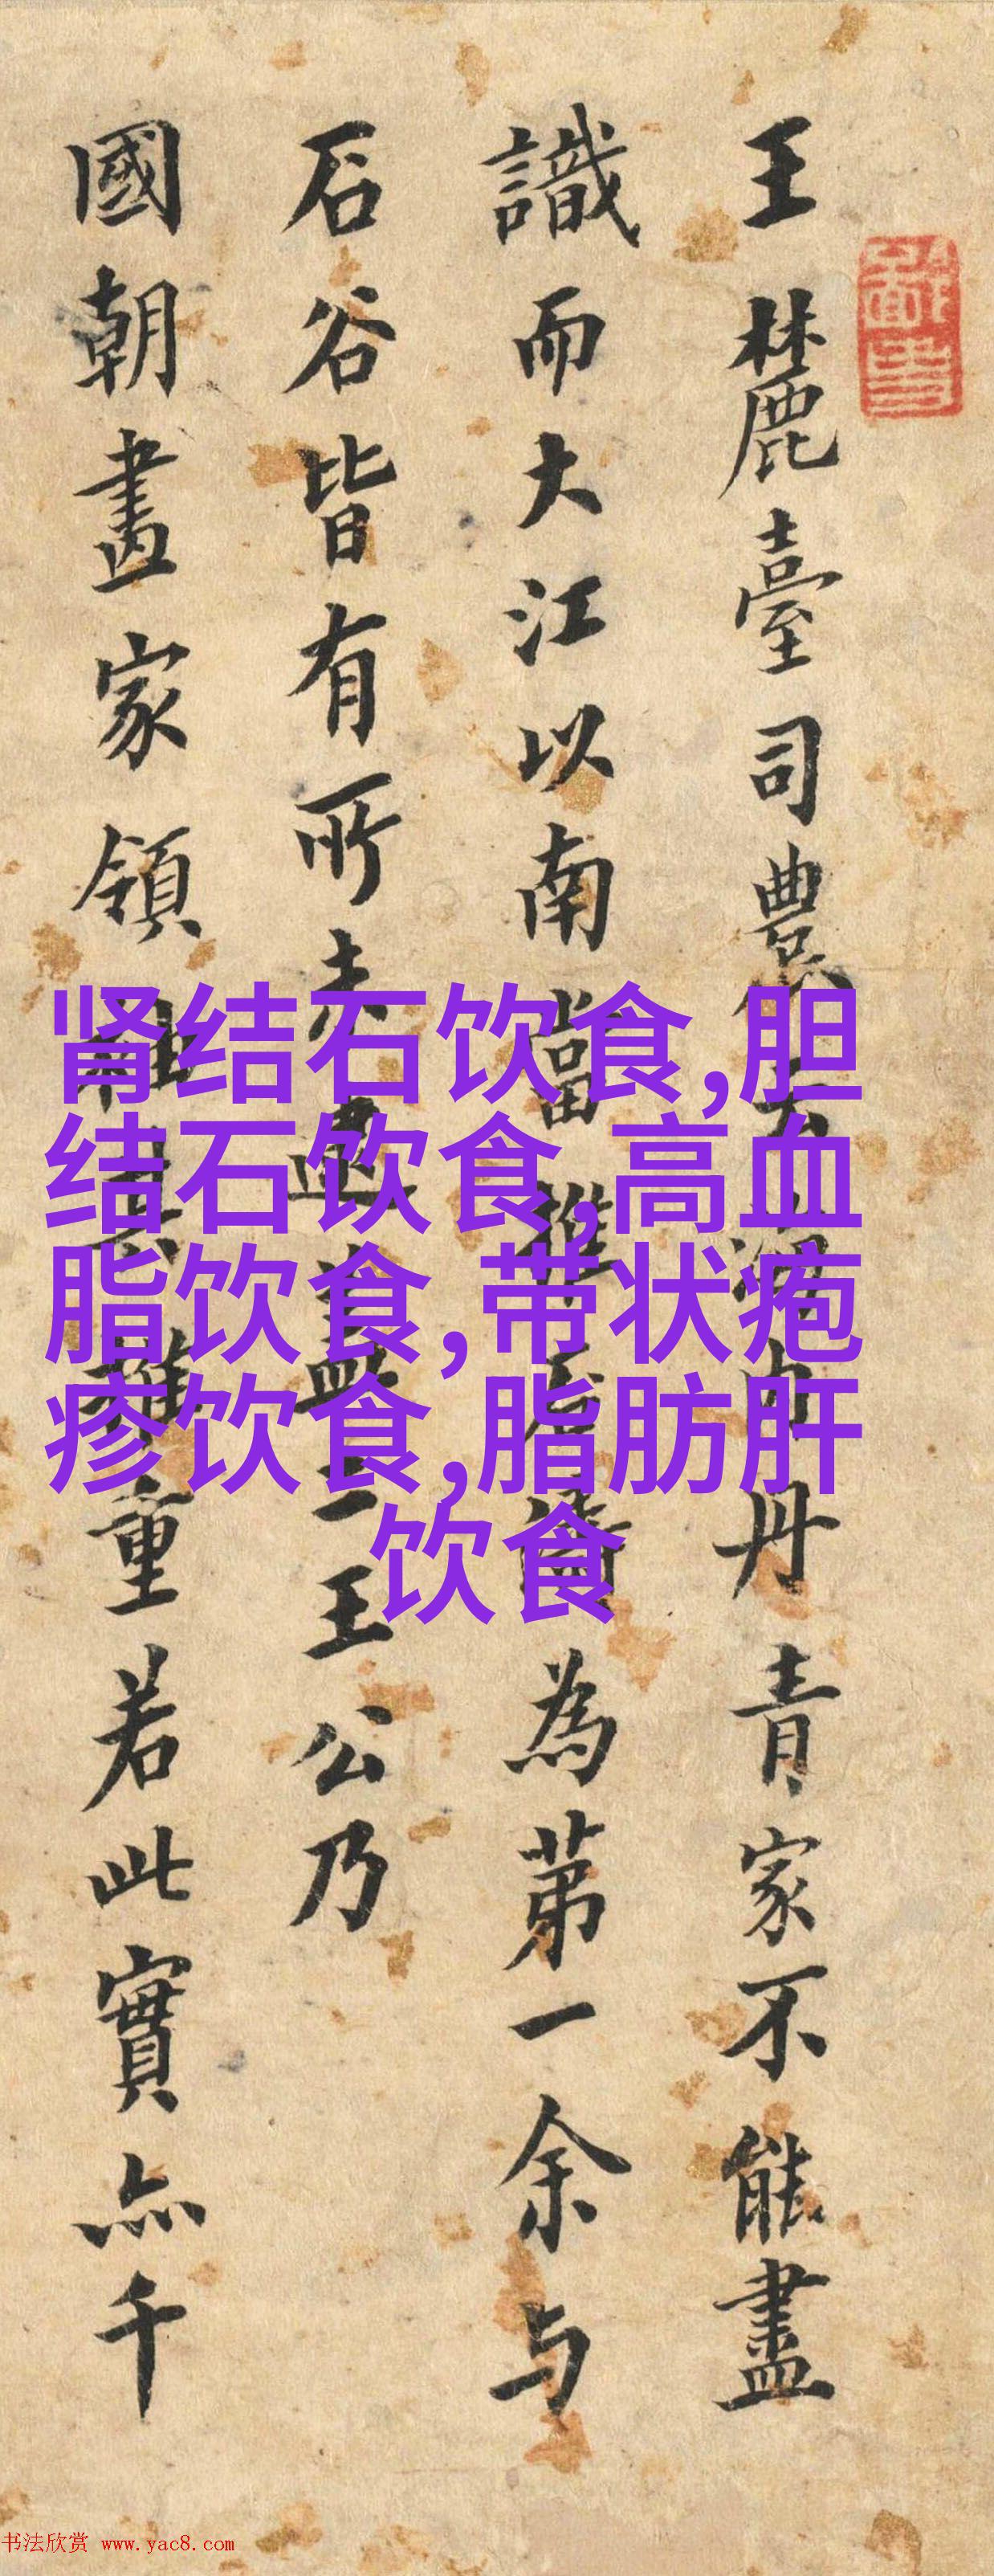 王麓臺司農
丹青家不能盡
識而大江以南當推
為第一余与
石谷皆有所未逮
二王公乃
國朝畫家領袖
重若此實亦千
肾结石饮食,胆
结石饮食,高血
脂饮食,带状疱
疹饮食,脂肪肝
饮食
书法欣赏 www.yac8.com